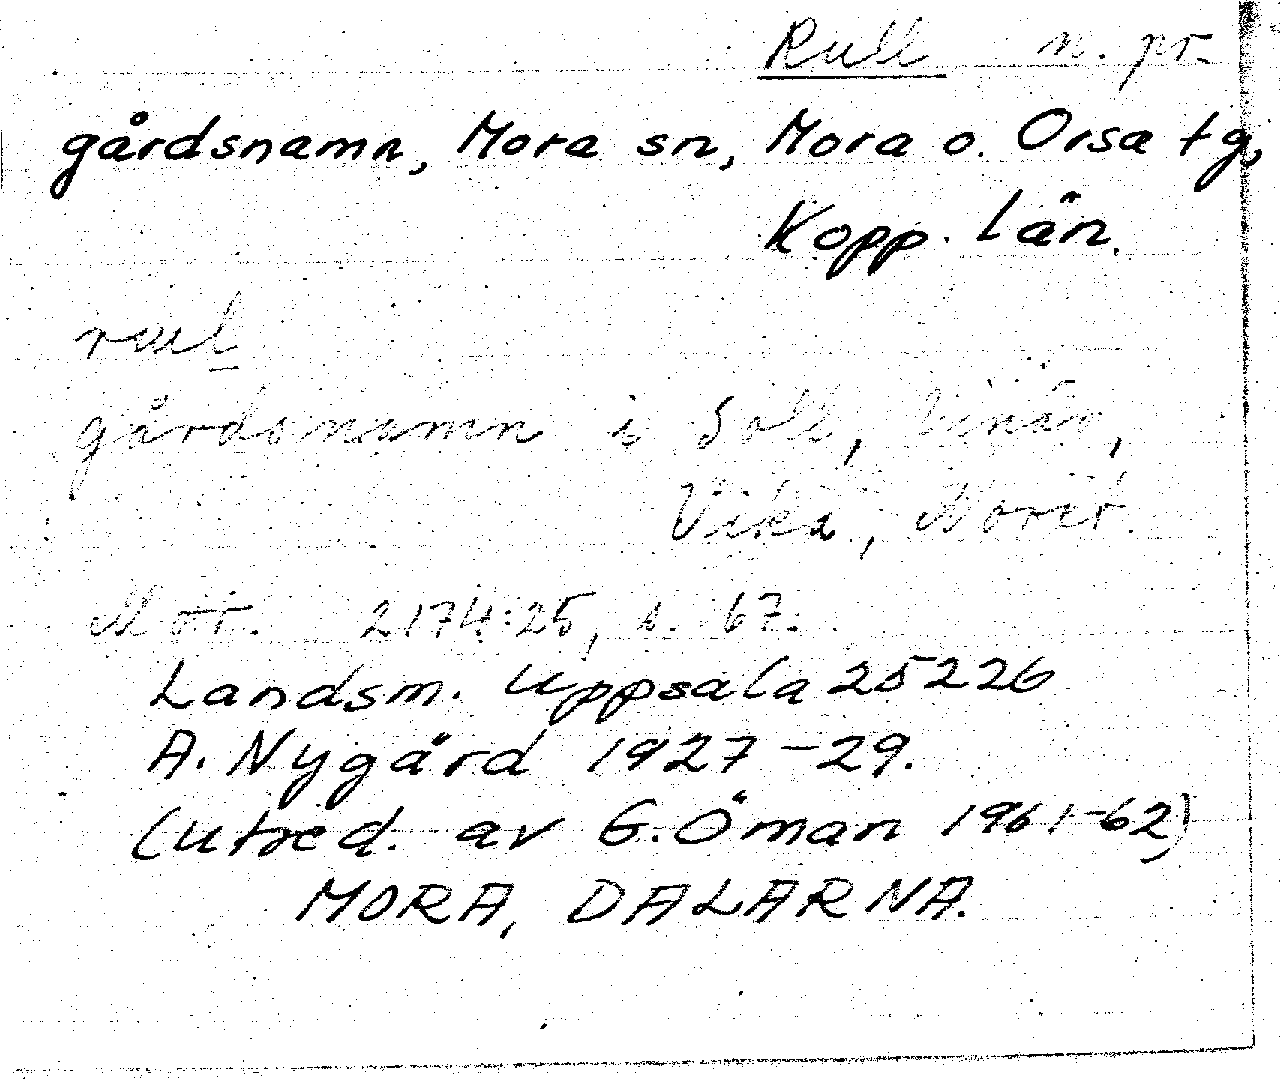 Rull n. pr.
gårdsnamn, Mora sn, Mora o. Orsa tg,
Kopp. län.
gårdsnamn i Soll, Vinäs,
Vika, Norét.
Mot. 2174:25, s. 67.
Landsm. Uppsala 25226
A. Nygård 1927-29.
(utred. av G. Öman 1961-62)
MORA, DALARNA.